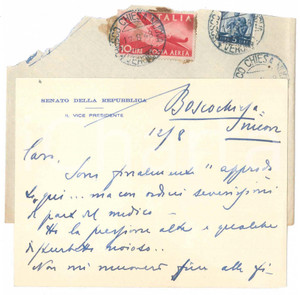 ITALIA
10 LIRE POSTA AEREA
BOSCO CHIESANUOVA
VERONA
SENATO DELLA REPUBBLICA
IL VICE PRESIDENTE
Boscochiesa
12/8
Cari,
Sono finalmente approdato
qui... ma con ordini severissimi
da parte del medico
Ho la pressione alta e qualche
disturbetto noioso..
Non mi muoverò fino alla fi-